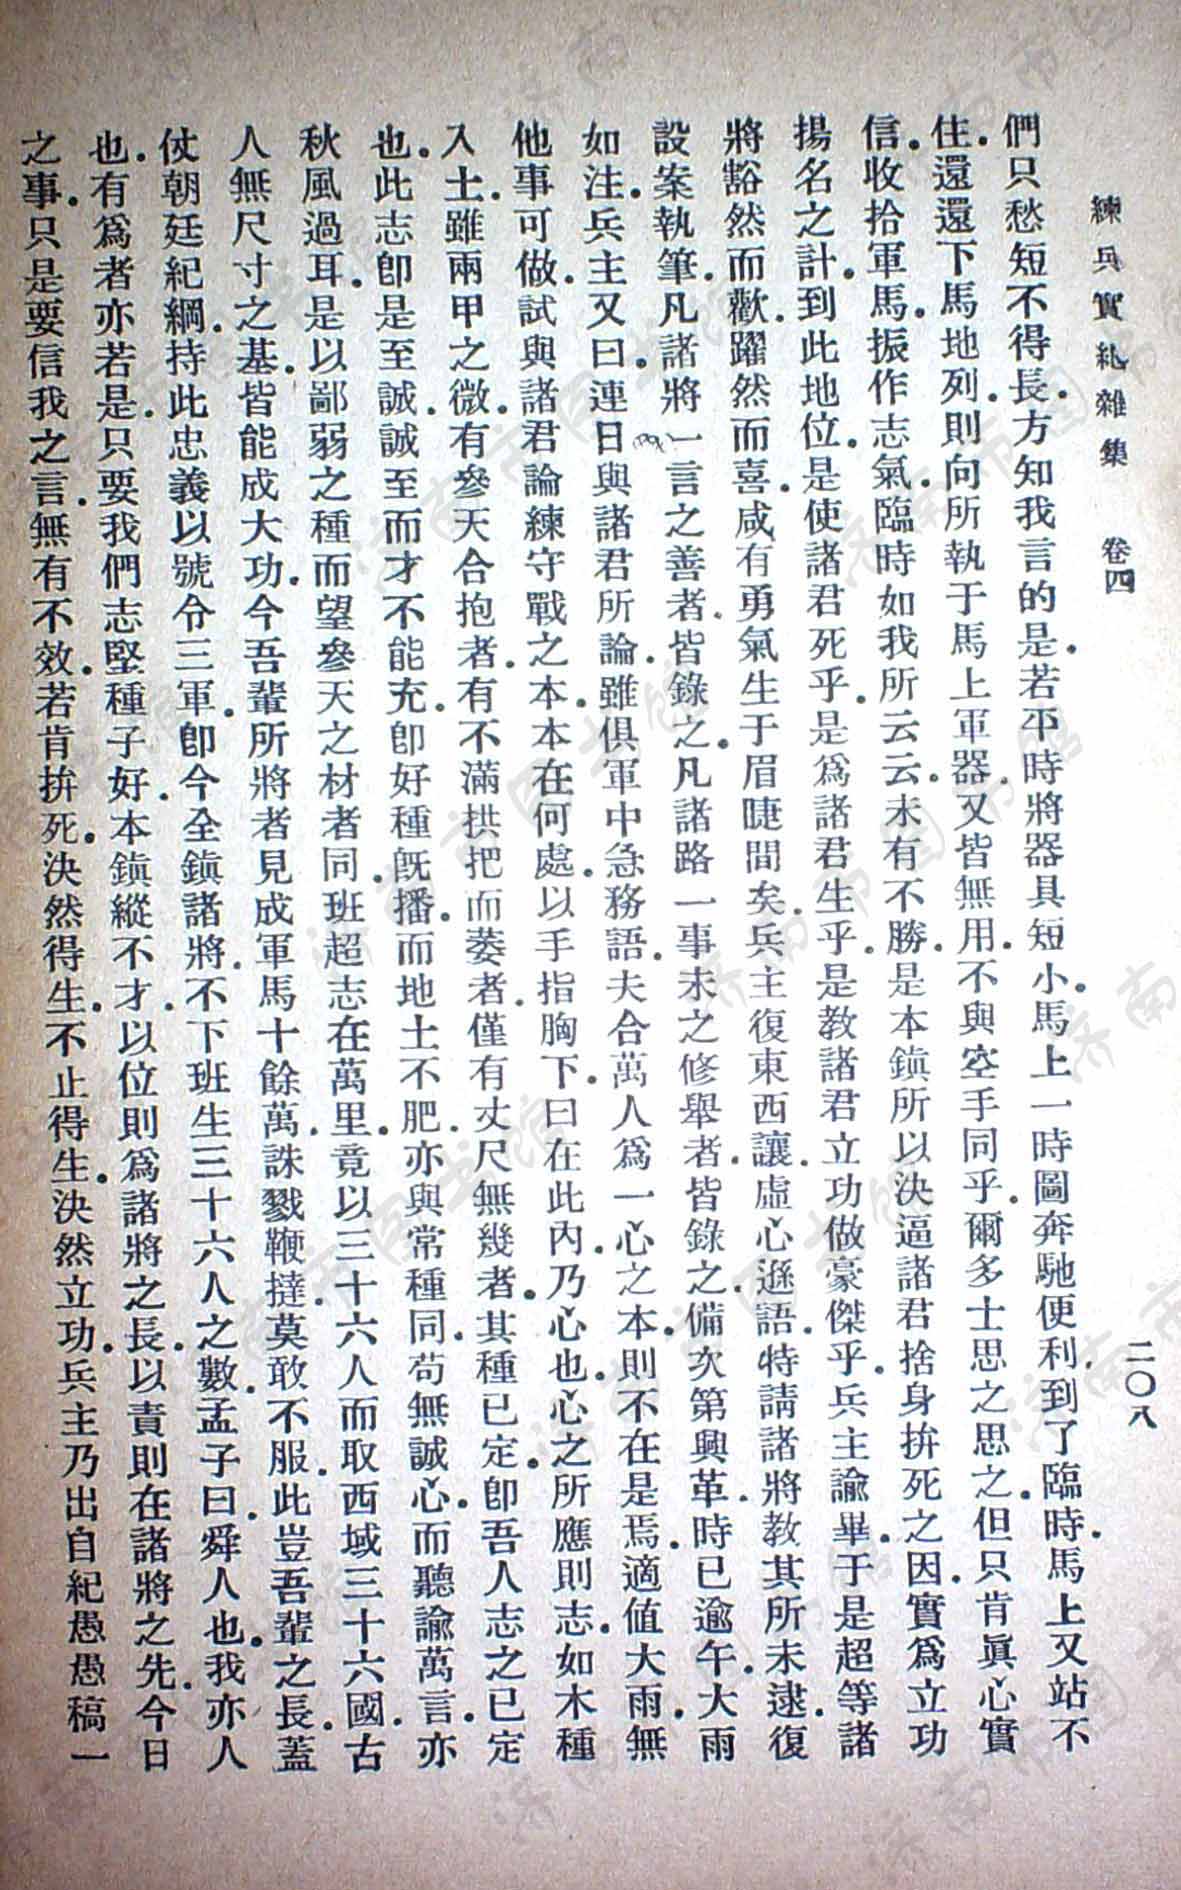 練兵實紀雜集 卷四 二〇八
們只愁短不得長.方知我言的是.若平時將器具短小.馬上一時圖奔馳便利.到了臨時.馬上又站不
住.還還下馬地列.則向所執于馬上軍器.又皆無用.不與空手同乎.爾多士思之思之.但只肯眞心實
信.收拾軍馬.振作志氣.臨時如我所云云.未有不勝.是本鎮所以決逼諸君捨身拚死之因.實爲立功
揚名之計.到此地位.是使諸君死乎.是爲諸君生乎.是教諸君立功做豪傑乎.兵主諭畢.于是超等諸
將豁然而歡.躍然而喜.咸有勇氣生于眉睫間矣.兵主復東西讓.虛心遜語.特請諸將教其所未逮.復
設案執筆.凡諸將一言之善者.皆錄之.凡諸路一事未之修舉者.皆錄之.備次第興革.時已逾午.大雨
如注.兵主又曰.連日與諸君所論.雖俱軍中急務語.夫合萬人爲一心之本.則不在是焉.適值大雨.無
他事可做.試與諸君論練守戰之本.本在何處.以手指胸下.曰在此內.乃心也.心之所應則志.如木種
入土.雖兩甲之微.有參天合抱者.有不滿拱把而萎者.僅有丈尺無幾者.其種已定.卽吾人志之已定
也.此志卽是至誠.誠至而才不能充.卽好種旣播.而地土不肥.亦與常種同.苟無誠心.而聽諭萬言.亦
秋風過耳.是以鄙弱之種而望參天之材者同.班超志在萬里.竟以三十六人而取西域三十六國.古
人無尺寸之基.皆能成大功.今吾輩所將者見成軍馬十餘萬.誅戮鞭撻.莫敢不服.此豈吾輩之長.蓋
仗朝廷紀綱.持此忠義以號令三軍.卽今全鎮諸將.不下班生三十六人之數.孟子曰.舜人也.我亦人
也.有爲者亦若是.只要我們志堅種子好.本鎮縱不才.以位則爲諸將之長.以責則在諸將之先.今日
之事.只是要信我之言.無有不效.若肯拚死.決然得生.不止得生.決然立功.兵主乃出自紀愚愚稿一